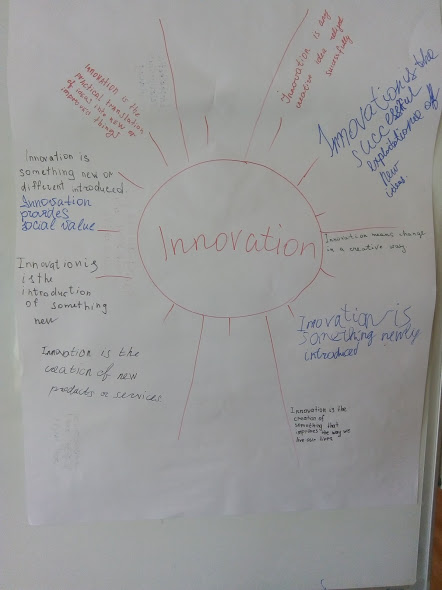 Innovation is the
practical translation
of ideas into new or
improven things!
Innovation is any
creative idea
successfully
Innovation is the
successful
exploitation of
new
ideas
Innovation is
something new or
different introduced
Innovation
provides
social value
Innovation
Innovation means change
in a creative way
Innovation is
is the
introduction
of something
new
Innovation is
something newly
introduced
Innovation is the
creation of new
products or services
Innovation is the
creation of
something that
improves the way we
live our lives